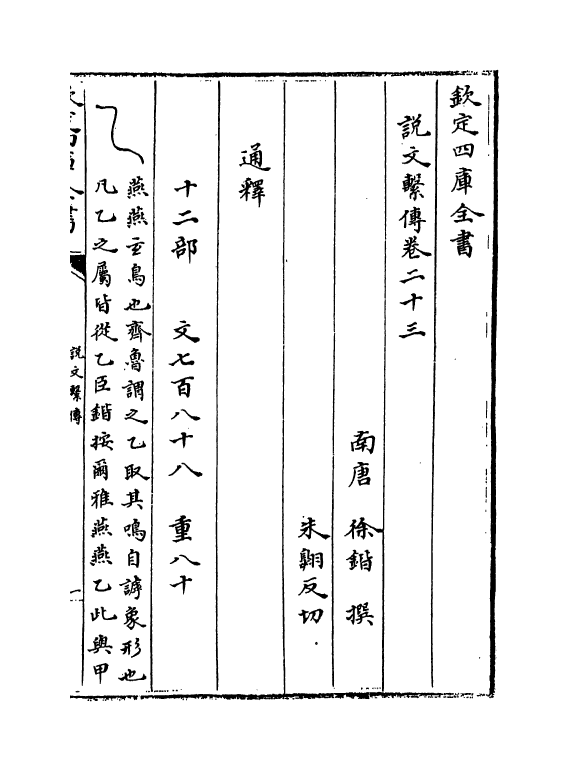 欽定四庫全書
說文繫傳卷二十三
南唐 徐鍇 撰
朱翺反切
通釋
十二部 文七百八十八 重八十
乙
燕燕𤣥鳥也齊魯謂之乙取其鳴自謼象形也
凡乙之屬皆從乙臣鍇按爾雅燕燕乙此與甲
說文繫傳
一